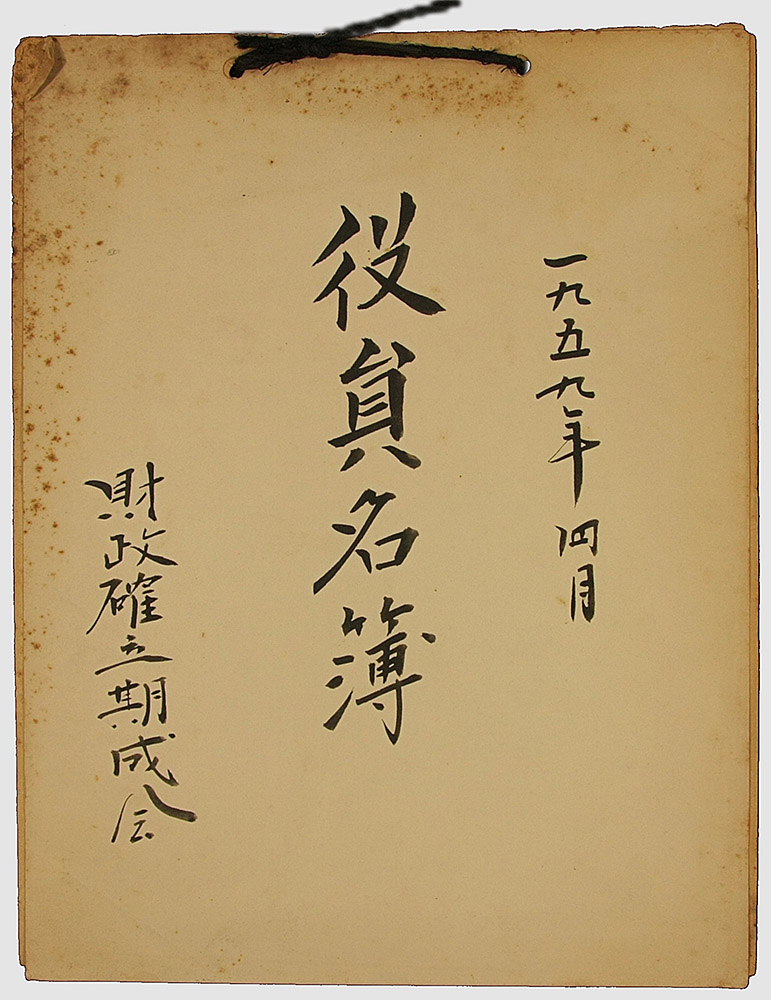 一九五九年四月
役員名簿
財政確立期成会